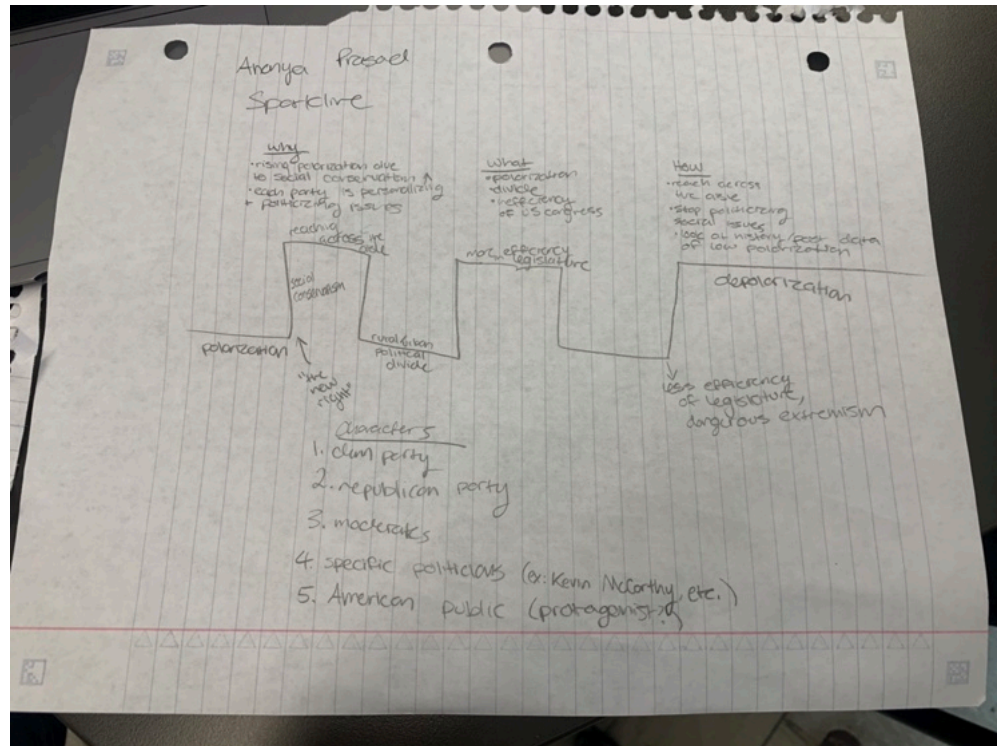 Ananya Prasad
Sparkline
why
• rising polarization due
to social conservatism ↑
• each party is personalizing
+ politicizing issues
What
• polarization
divide
• inefficiency
of US congress
How
• reach across
the aisle
• stop politicizing
social issues
• look at history/past data
of low polarization
reaching
across the
aisle
social
conservatism
more efficiency
legislature
depolarization
polarization
"the
new
right"
rural/urban
political
divide
less efficiency
of legislature,
dangerous extremism
Characters
1. dem party
2. republican party
3. moderates
4. specific politicians (ex: Kevin McCarthy, etc.)
5. American public (protagonist?)